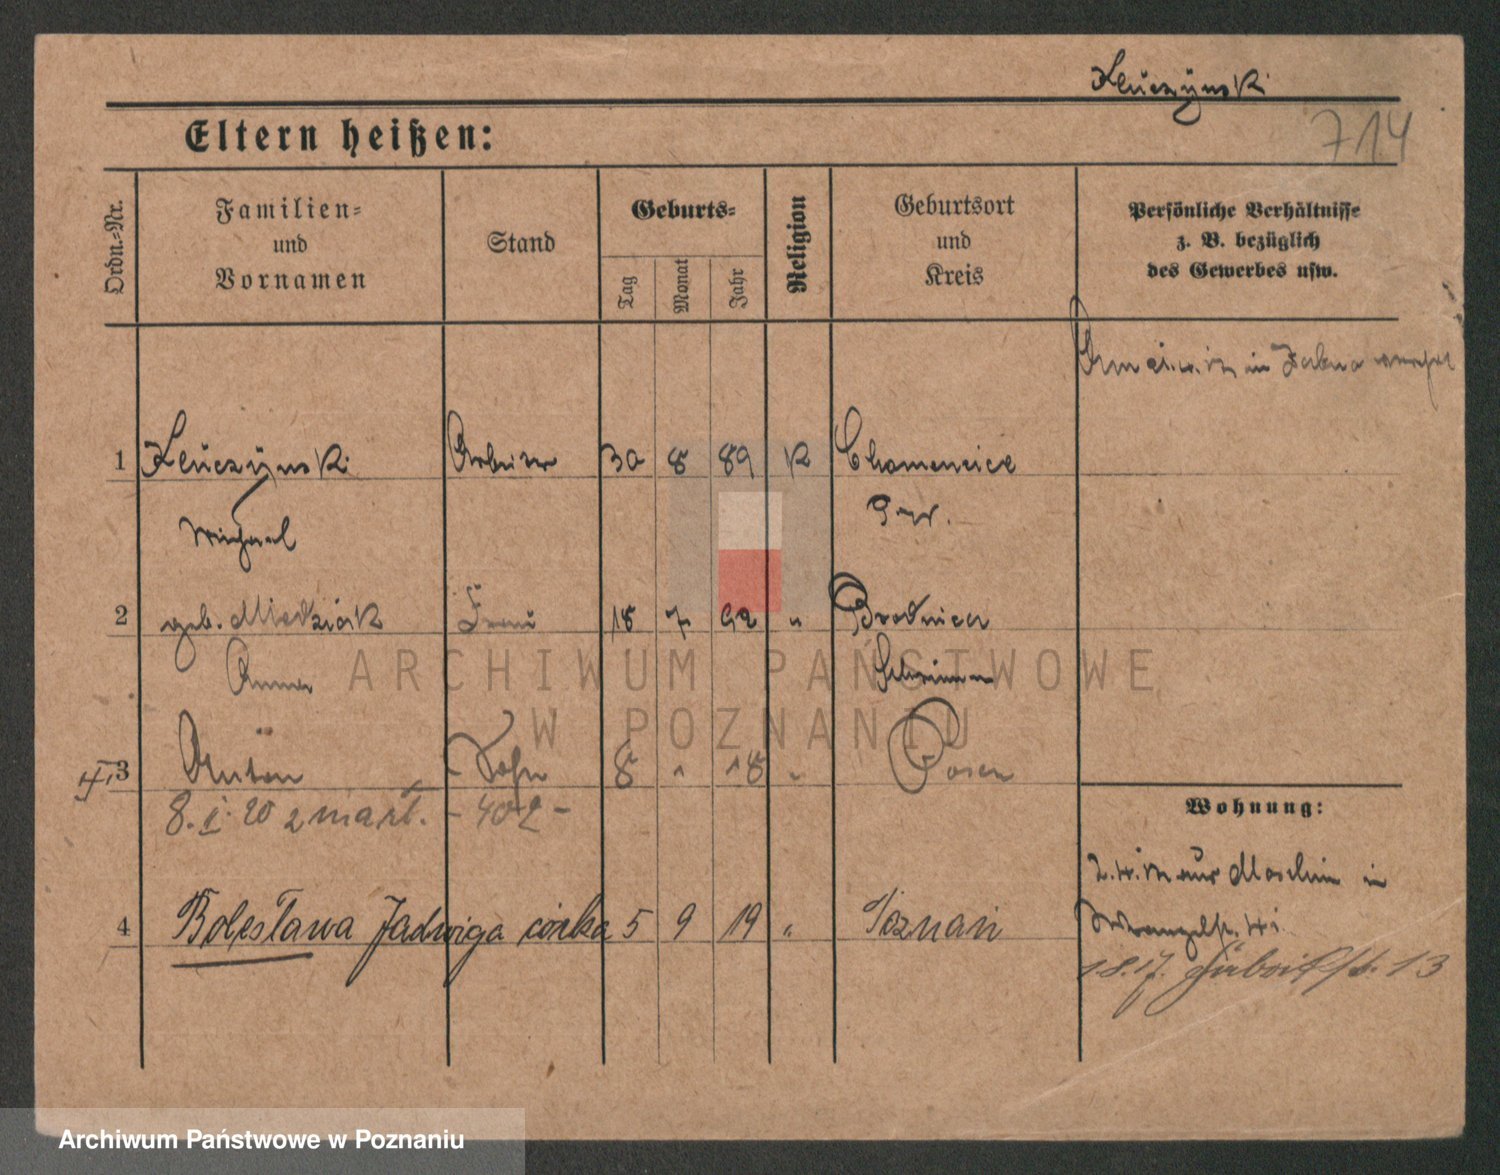 Kluczynski
714
Eltern heißen:
Ordn.-Nr.
Familien- und Vornamen
Stand
Geburts-
Tag
Monat
Jahr
Religion
Geburtsort und Kreis
Persönliche Verhältnisse z. B. bezüglich des Gewerbes usw.
in
1 Kluczynski Arbeiter 30 8 89 K Chomencice
Michael
2 geb. Miedziak Frau 18 7 92 " Brodnica
Anna Schrimm
3 Anton Sohn 8 " 18 " Posen
8. I. 20 zmarł. - 402 -
Wohnung:
in
4 Bolesława Jadwiga córka 5 9 19 " Poznań
13
ARCHIWUM PAŃSTWOWE
W POZNANIU
Archiwum Państwowe w Poznaniu